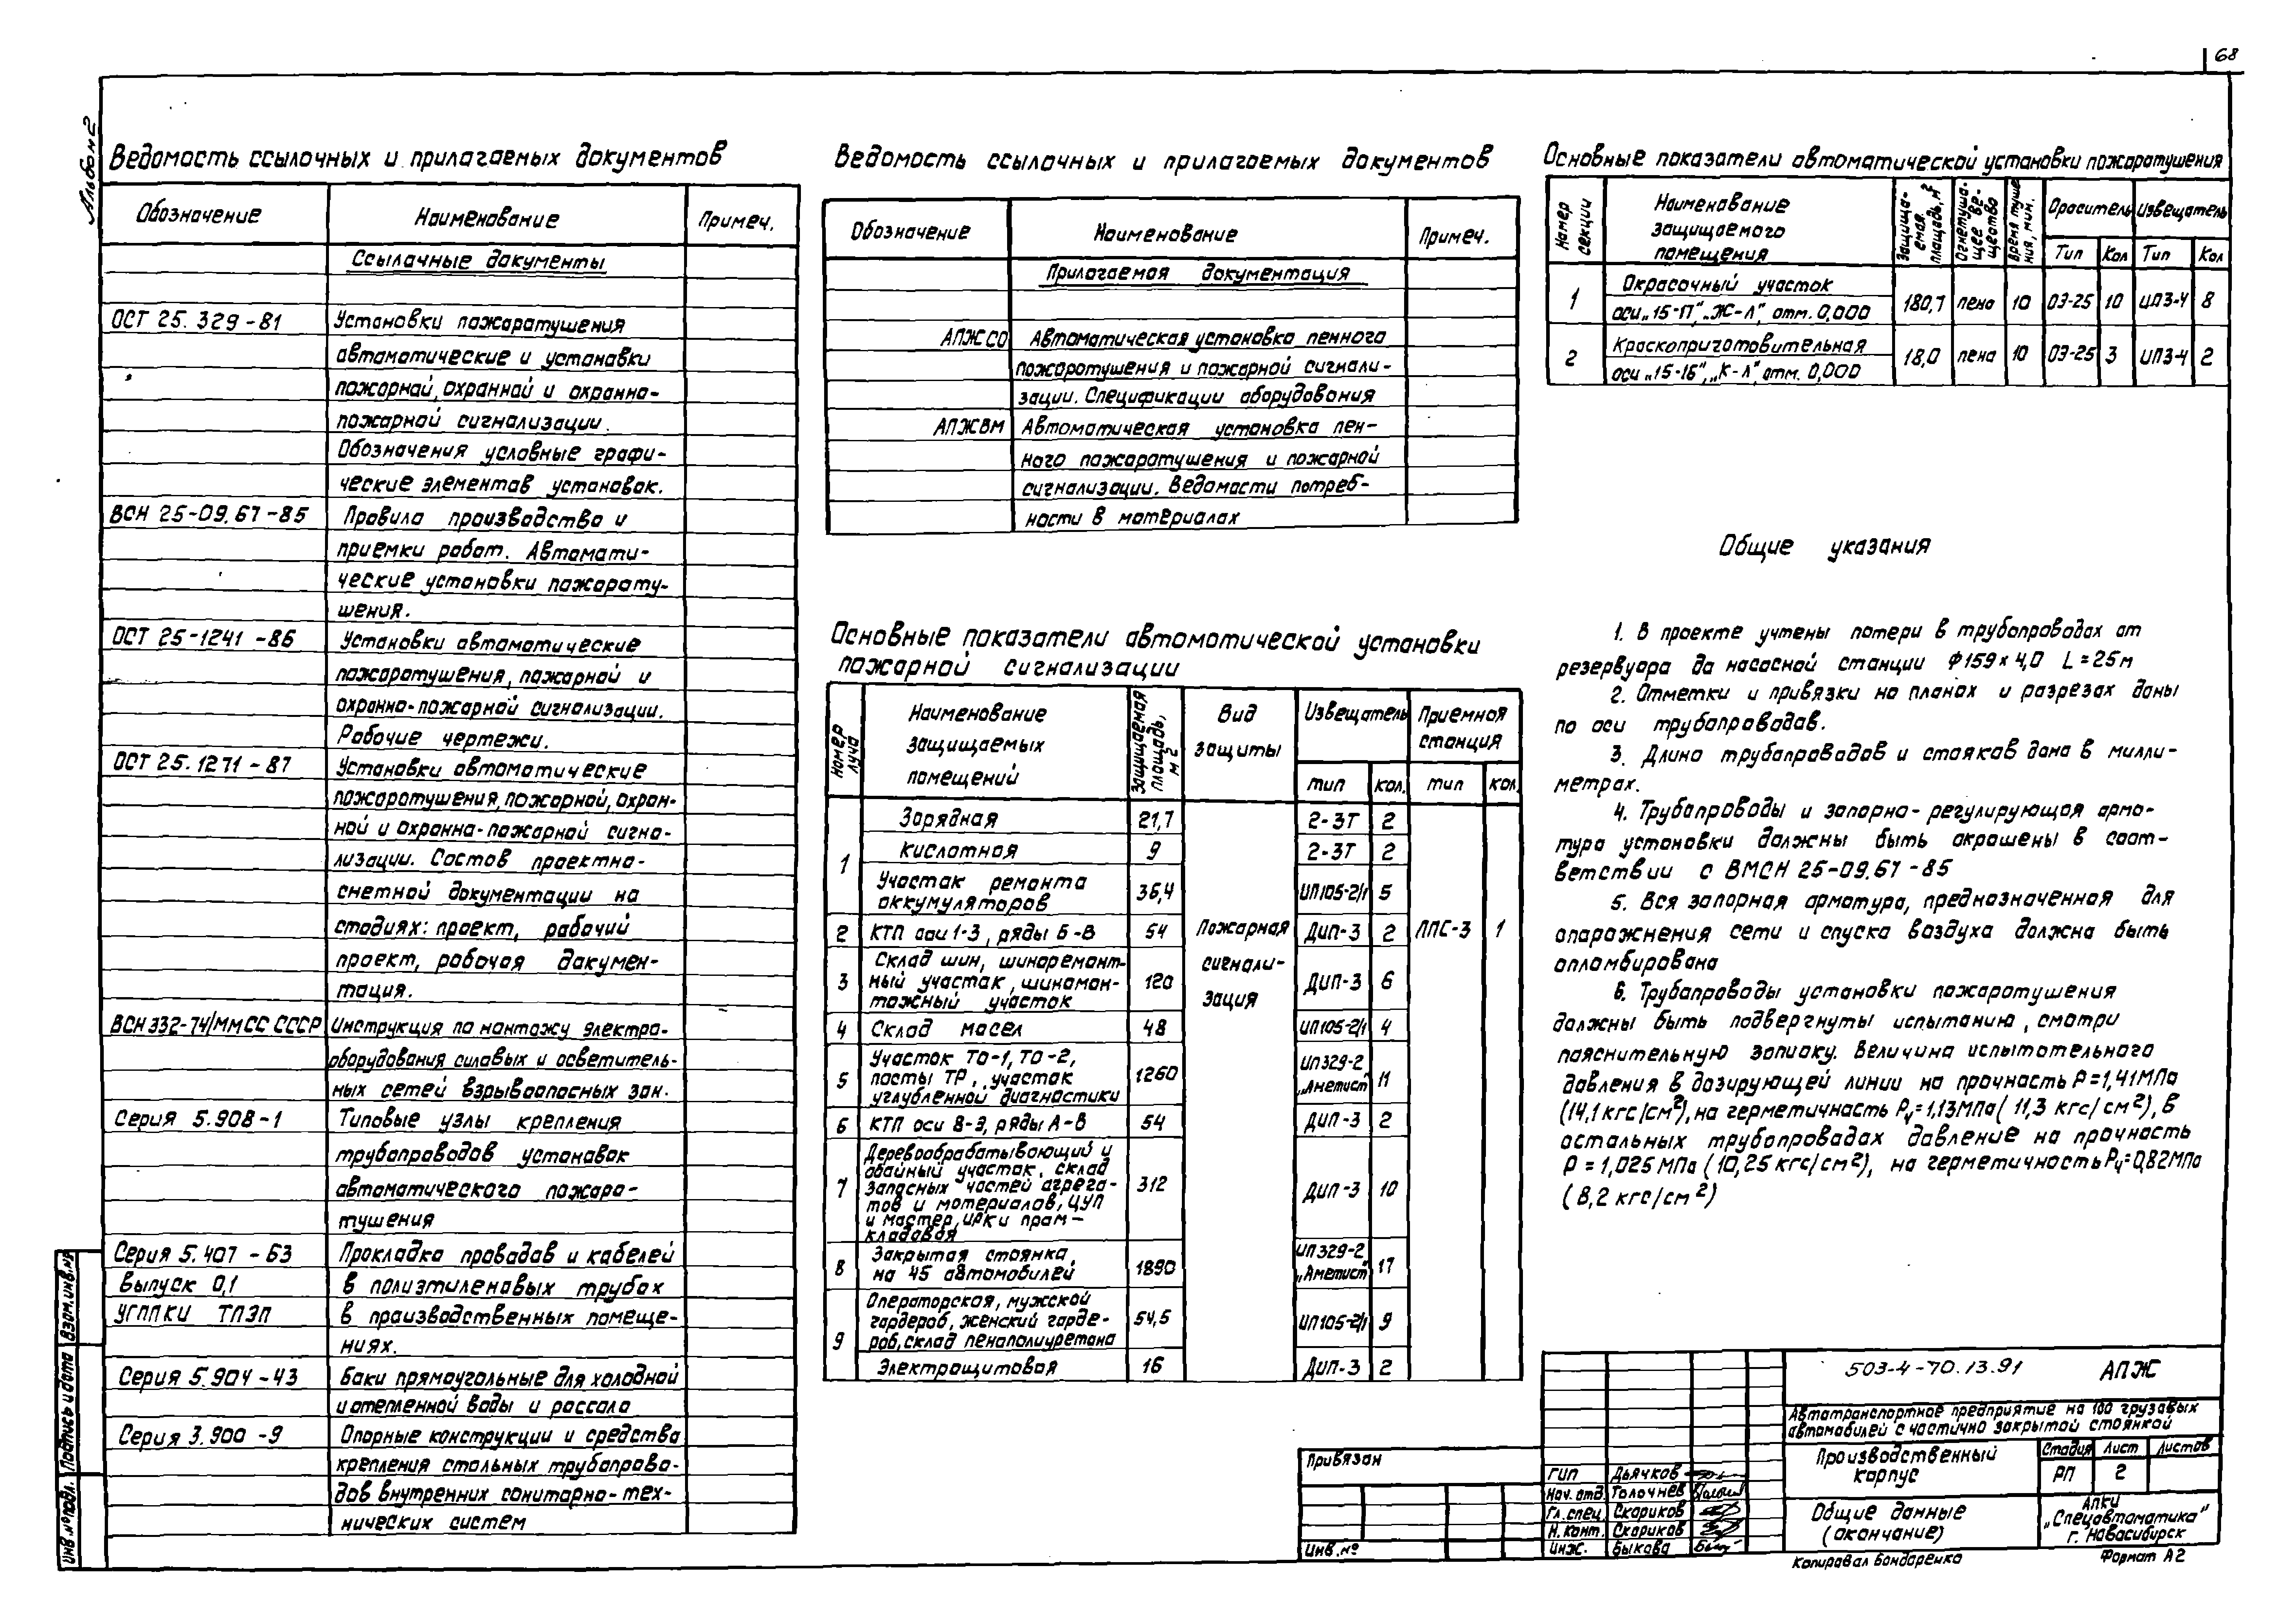 68
Альбом 2
Ведомость ссылочных и прилагаемых документов
Обозначение Наименование Примеч.
Ссылачные документы
ОСТ 25.329-81 Установки пожаротушения
автоматические и установки
пожарной, охранной и охранно-
пожарной сигнализации.
Обозначения условные графи-
ческие элементов установок.
ВСН 25-09.67-85 Правила производства и
приемки работ. Автомати-
ческие установки пожароту-
шения.
ОСТ 25-1241-86 Установки автоматические
пожаротушения, пожарной и
охранно-пожарной сигнализации.
Рабочие чертежи.
ОСТ 25.1271-87 Установки автоматические
пожаротушения, пожарной, охран-
ной и охранно-пожарной сигна-
лизации. Состав проектно-
сметной документации на
стадиях: проект, рабочий
проект, рабочая докумен-
тация.
ВСН 332-74/ММСС СССР Инструкция по монтажу электро-
оборудования силовых и осветитель-
ных сетей взрывоопасных зон.
Серия 5.908-1 Типовые узлы крепления
трубопроводов установок
автоматического пожаро-
тушения
Серия 5.407-63 Прокладка проводов и кабелей
выпуск 0,1 в полиэтиленовых трубах
УГППКИ ТПЭП в производственных помеще-
ниях.
Серия 5.904-43 Баки прямоугольные для холодной
и отепленной воды и рассола
Серия 3.900-9 Опорные конструкции и средства
крепления стальных трубопрово-
дов внутренних санитарно-тех-
нических систем
Ведомость ссылочных и прилагаемых документов
Обозначение Наименование Примеч.
Прилагаемая документация
АПЖ СО Автоматическая установка пенного
пожаротушения и пожарной сигнали-
зации. Спецификации оборудования
АПЖ ВМ Автоматическая установка пен-
ного пожаротушения и пожарной
сигнализации. Ведомости потреб-
ности в материалах
Основные показатели автоматической установки
пожарной сигнализации
Номер луча Наименование защищаемых помещений Защищаемая площадь, м2 Вид защиты Извещатель Приемная станция
тип кол. тип кол.
1 Зарядная 21,7 2-ЗТ 2
Кислотная 9 2-ЗТ 2
Участок ремонта аккумуляторов 36,4 ИП105-2/1 5
2 КТП оси 1-3, ряды Б-В 54 Пожарная сигнали-зация ДИП-3 2 ППС-3 1
3 Склад шин, шиноремонт-
ный участок, шиномон-
тажный участок 120 ДИП-3 6
4 Склад масел 48 ИП105-2/1 4
5 Участок ТО-1, ТО-2,
посты ТР, участок
углубленной диагностики 1260 ИП329-2 „Аметист" 11
6 КТП оси 8-9, ряды А-В 54 ДИП-3 2
7 Деревообрабатывающий и
обойный участок, склад
запасных частей агрега-
тов и материалов, ЦУП
и мастер, ИРК и пром-
кладовая 312 ДИП-3 10
8 Закрытая стоянка
на 45 автомобилей 1890 ИП329-2 „Аметист" 17
9 Операторская, мужской
гардероб, женский гарде-
роб, склад пенополиуретана 54,5 ИП105-2/1 9
Электрощитовая 16 ДИП-3 2
Основные показатели автоматической установки пожаротушения
Номер секции Наименование защищаемого помещения Защища-емая площадь, м2 Огнетуша-щее ве-щество Время туше ния, мин. Ороситель Извещатель
Тип Кол Тип Кол
1 Окрасочный участок
оси „15-17", „Ж-Л", отм. 0,000 180,7 пена 10 ОЭ-25 10 ИПЗ-4 8
2 Краскоприготовительная
оси „15-16", „К-Л", отм. 0,000 18,0 пена 10 ОЭ-25 3 ИПЗ-4 2
Общие указания
1. В проекте учтены потери в трубопроводах от
резервуара до насосной станции ф159×4,0 L=25м
2. Отметки и привязки на планах и разрезах даны
по оси трубопроводов.
3. Длина трубопроводов и стояков дана в милли-
метрах.
4. Трубопроводы и запорно-регулирующая арма-
тура установки должны быть окрашены в соот-
ветствии с ВМСН 25-09.67-85
5. Вся запорная арматура, предназначенная для
опорожнения сети и спуска воздуха должна быть
опломбирована
6. Трубопроводы установки пожаротушения
должны быть подвергнуты испытанию, смотри
пояснительную записку. Величина испытательного
давления в дозирующей линии на прочность Р=1,41МПа
(14,1 кгс/см2), на герметичность Ру=1,13МПа (11,3 кгс/см2), в
остальных трубопроводах давление на прочность
Р=1,025 МПа (10,25 кгс/см2), на герметичность Ру=0,82МПа
(8,2 кгс/см2)
503-4-70.13.91 АПЖ
Автотранспортное предприятие на 100 грузовых
автомобилей с частично закрытой стоянкой
Производственный корпус
Стадия Лист Листов
РП 2
Общие данные (окончание)
АПКИ „Спецавтоматика" г. Новосибирск
ГИП Дьячков
Нач. отд. Толочнев
Гл. спец. Скориков
Н. конт. Скориков
Инж. Быкова
Привязан
Инв. №
Копировал Бондаренко Формат А2
Взам. инв. №
Подпись и дата
Инв. № подл.